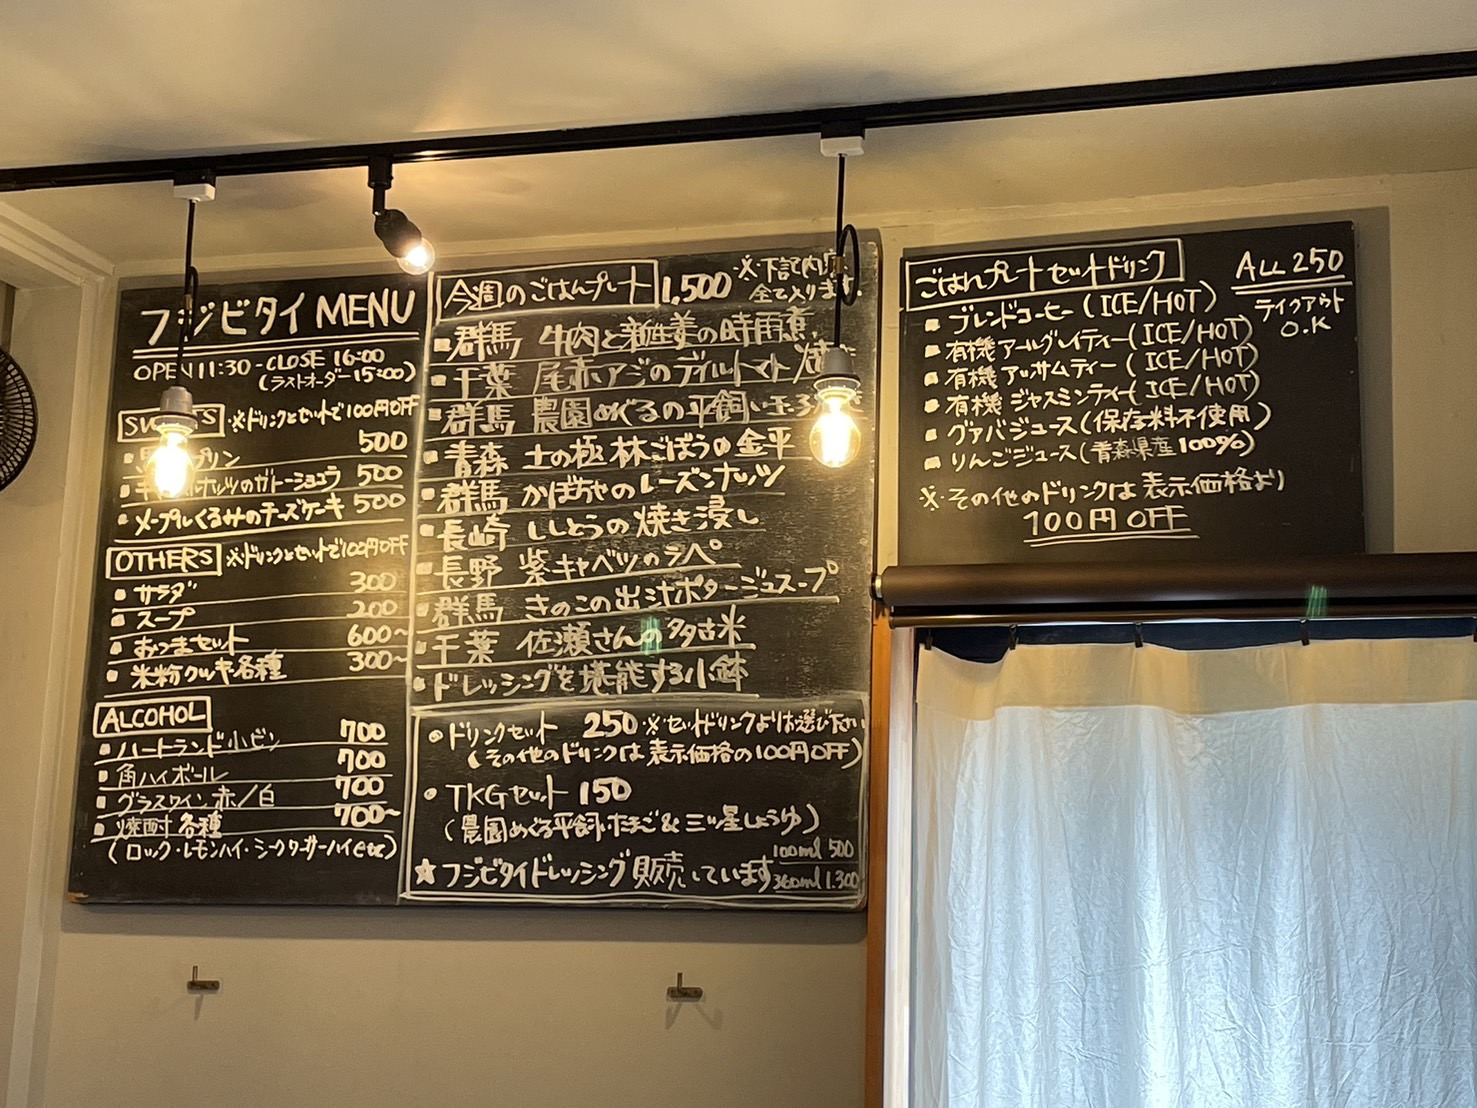 フジビタイ MENU
OPEN 11:30 - CLOSE 16:00
(ラストオーダー 15:00)
※ドリンクとセットで100円OFF
プリン 500
ナッツのガトーショコラ 500
メープルくるみのチーズケーキ 500
OTHERS ※ドリンクとセットで100円OFF
サラダ 300
スープ 200
おつまセット 600~
米粉クッキー各種 300~
ALCOHOL
ハートランド小ビン 700
角ハイボール 700
グラスワイン 赤/白 700
焼酎 各種 700~
(ロック・レモンハイ・シークワーサーハイetc)
今週のごはんプレート 1,500 ※下記内容
全て入ります。
群馬 牛肉と新生姜の時雨煮
千葉 尾赤アジのディルトマト
群馬 農園めぐるの平飼い
青森 土の極 林ごぼうの金平
群馬 かぼちゃのレーズンナッツ
長崎 ししとうの焼き浸し
長野 紫キャベツのラペ
群馬 きのこの出汁ポタージュスープ
千葉 佐瀬さんの多古米
ドレッシングを堪能する小鉢
ドリンクセット 250 ※セットドリンクよりお選び下さい
(その他のドリンクは表示価格の100円OFF)
TKGセット 150
(農園めぐる平飼いたまご&三ツ星しょうゆ)
☆フジビタイドレッシング販売しています 100ml 500
360ml 1.300
ごはんプレートセットドリンク ALL 250
テイクアウト
O.K
ブレンドコーヒー (ICE/HOT)
有機 アールグレイティー (ICE/HOT)
有機 アッサムティー (ICE/HOT)
有機 ジャスミンティー (ICE/HOT)
グァバジュース (保存料不使用)
りんごジュース (青森県産100%)
※その他のドリンクは表示価格より
100円OFF